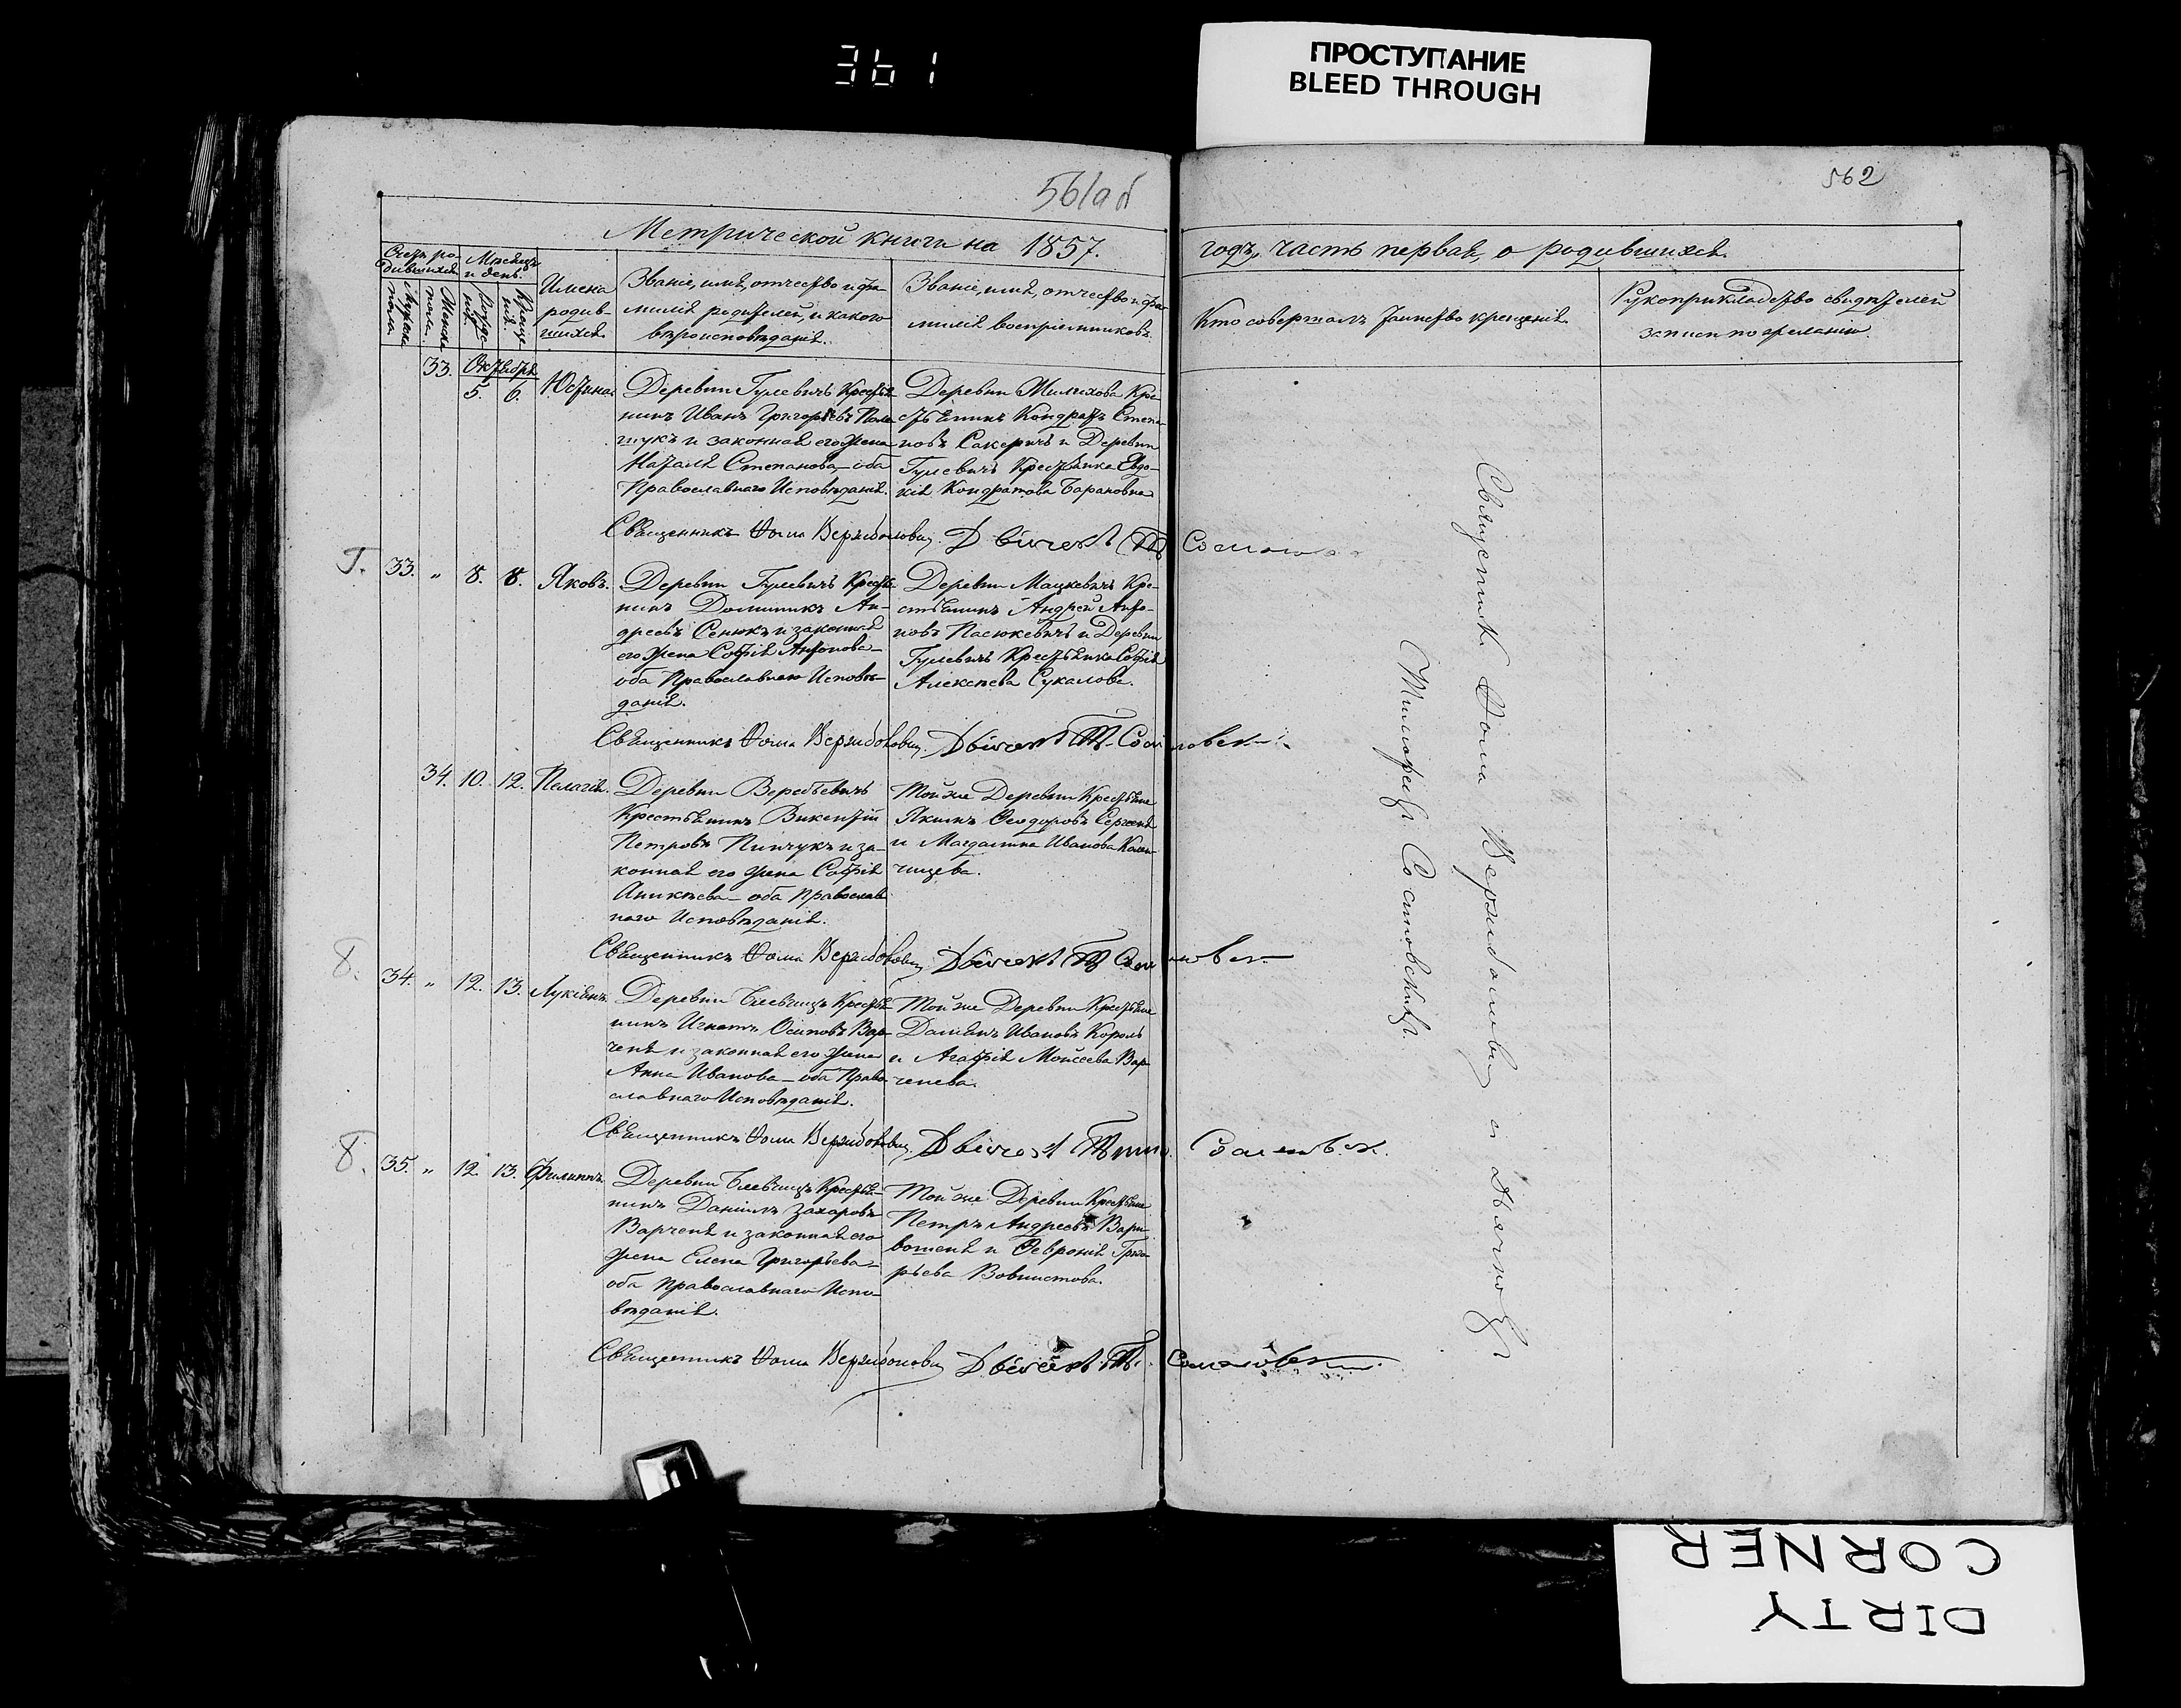 361
ПРОСТУПАНИЕ
BLEED THROUGH
561об
562
Метрической книги на 1857.
годъ, часть первая, о родившихся.
Счетъ ро-
дившихся
Мужеска
пола.
Женска
пола.
Мѣсяцъ
и день.
Рожде
нія
Креще
нія.
Имена
родив-
шихся.
Званіе, имя, отчество и фа-
милія родителей, и какого
вѣроисповѣданія.
Званіе, имя, отчество и фа-
милія воспріемниковъ.
Кто совершалъ таинство крещенія.
Рукоприкладство свидѣтелей
записи по желанію.
33. Октября
5. 6. Юстина.
Деревни Гулевичъ Крестья-
нинъ Иванъ Григорьевъ Поле-
щукъ и законная его жена
Наталя Степанова, оба
Православнаго Исповѣданія.
Деревни Жилихова Кре-
стьянинъ Кондратъ Степа-
новъ Сакеричъ и Деревни
Гулевичъ Крестьянка Евдо-
кія Кондратова Барановна
Священникъ Ѳома Вержболовичъ
33. " 8. 8. Яковъ.
Деревни Гулевичъ Крестья-
нинъ Доминикъ Ан-
дреевъ Сенюкъ и законная
его жена Софія Антонова-
оба Православнаго Исповѣ-
данія.
Деревни Мацкевичъ Кре-
стьянинъ Андрей Анто-
новъ Пасюкевичъ и Деревни
Гулевичъ Крестьянка Софія
Алексѣева Сукалова.
Священникъ Ѳома Вержболовичъ
34. 10. 12. Пелагія.
Деревни Веребьевичъ
Крестьянинъ Викентій
Петровъ Пинчукъ и за-
конная его жена Софія
Аникѣева- оба Православ
наго Исповѣданія.
Той же Деревни Крестьяне
Якимъ Ѳеодоровъ Сергеня
и Магдалина Иванова
Священникъ Ѳома Вержболовичъ
34. " 12. 13. Лукіянъ.
Деревни Крестья
нинъ Игнатъ Осиповъ Вар-
ченя и законная его жена
Анна Иванова- оба Право-
славнаго Исповѣданія.
Той же Деревни Крестьяне
Даміянъ Ивановъ Король
и Агафія Моисеева Вар
ченева.
Священникъ Ѳома Вержболовичъ
35. " 12. 13. Филиппъ.
Деревни Крестья-
нинъ Даніилъ Захаровъ
Варченя и законная его
жена Елена Григорьева-
оба Православнаго Испо-
вѣданія.
Той же Деревни Крестьяне
Петръ Андреевъ
и Февронія Григо-
рьева
Священникъ Ѳома Вержболовичъ
Священникъ Ѳома Вержболовичъ и Дьячокъ
Сосновскій.
DIRTY
CORNER